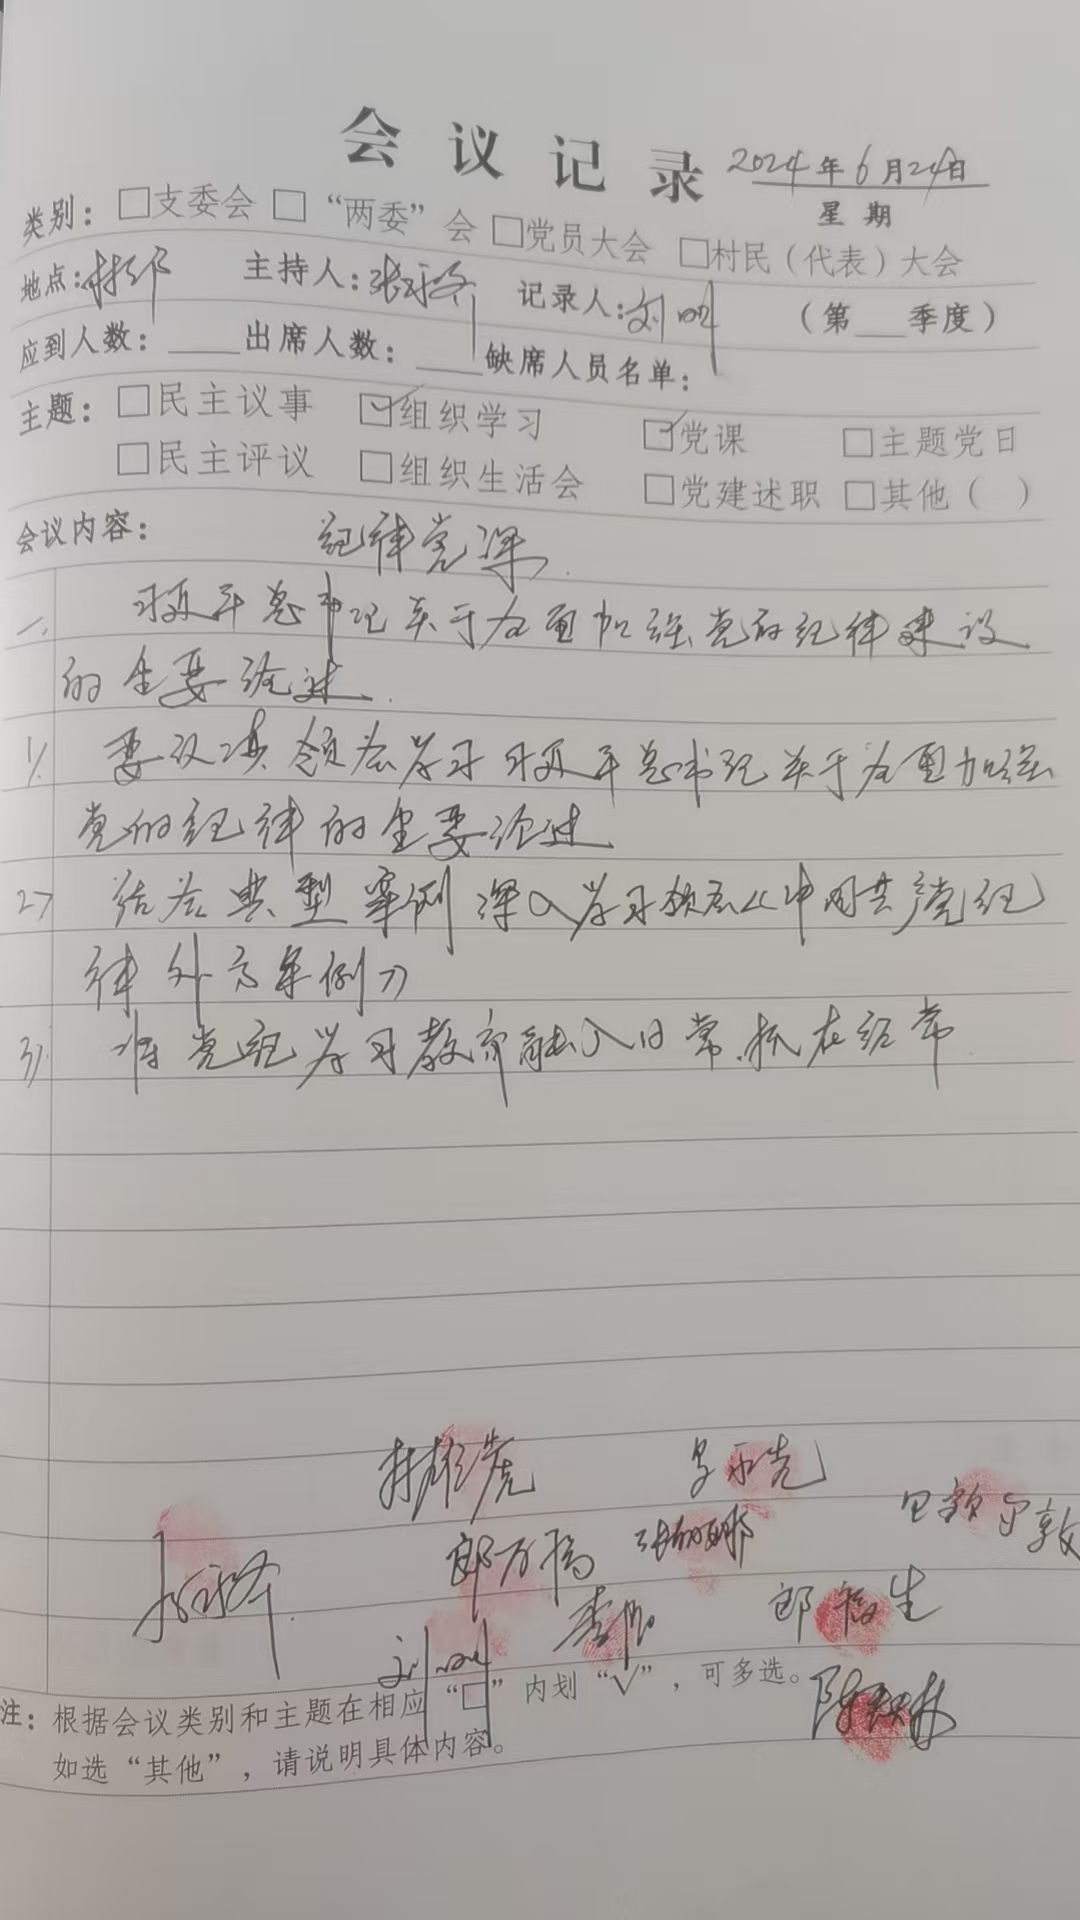 会议记录 2024年6月24日
星期
类别：□支委会 □“两委”会 □党员大会 □村民（代表）大会
地点：村部 主持人：张永 记录人：刘明 （第__季度）
应到人数：____ 出席人数：____ 缺席人员名单：
主题：□民主议事 ☑组织学习 ☑党课 □主题党日
□民主评议 □组织生活会 □党建述职 □其他（ ）
会议内容： 纪律党课
一、习近平总书记关于全面加强党的纪律建设
的重要论述
1、要认真领会学习习近平总书记关于全面加强
党的纪律的重要论述
2、结合典型案例深入学习领会《中国共产党纪
律处分条例》
3、将党纪学习教育融入日常.抓在经常
郎万福
郎福生
刘明
注：根据会议类别和主题在相应“□”内划“√”，可多选。
如选“其他”，请说明具体内容。